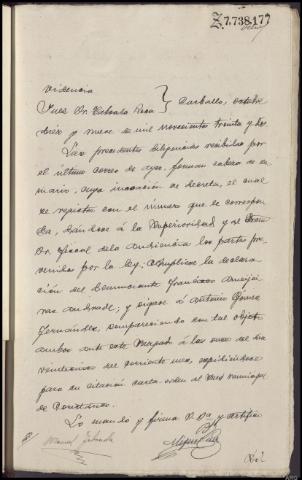 Z.7.738.177
Providencia
Juez Dr. Taboada Roca } Carballo, octubre
diez y nueve de mil novecientos treinta y dos
Las precedentes diligencias recibidas por
el último correo de ayer, forman cabeza de su
mario, cuya incoación se decreta, el cual
se registre con el número que le correspon
da, dándose à la Superioridad y al Iltmo
Sr. Fiscal de la Audiencia los partes pre
venidos por la ley; Amplíese la declara
ción del denunciante Francisco Ameijei
ras Andrade; y oigase à Antonio
Fernández, compareciendo con tal objeto
ambos ante este Juzgado à las once del dia
veintiseis del corriente mes, expidiéndose
para su citación carta orden al Juez municipal
de Coristanco.
Lo mando y firma S. Sª, doy fé
Manuel Taboada